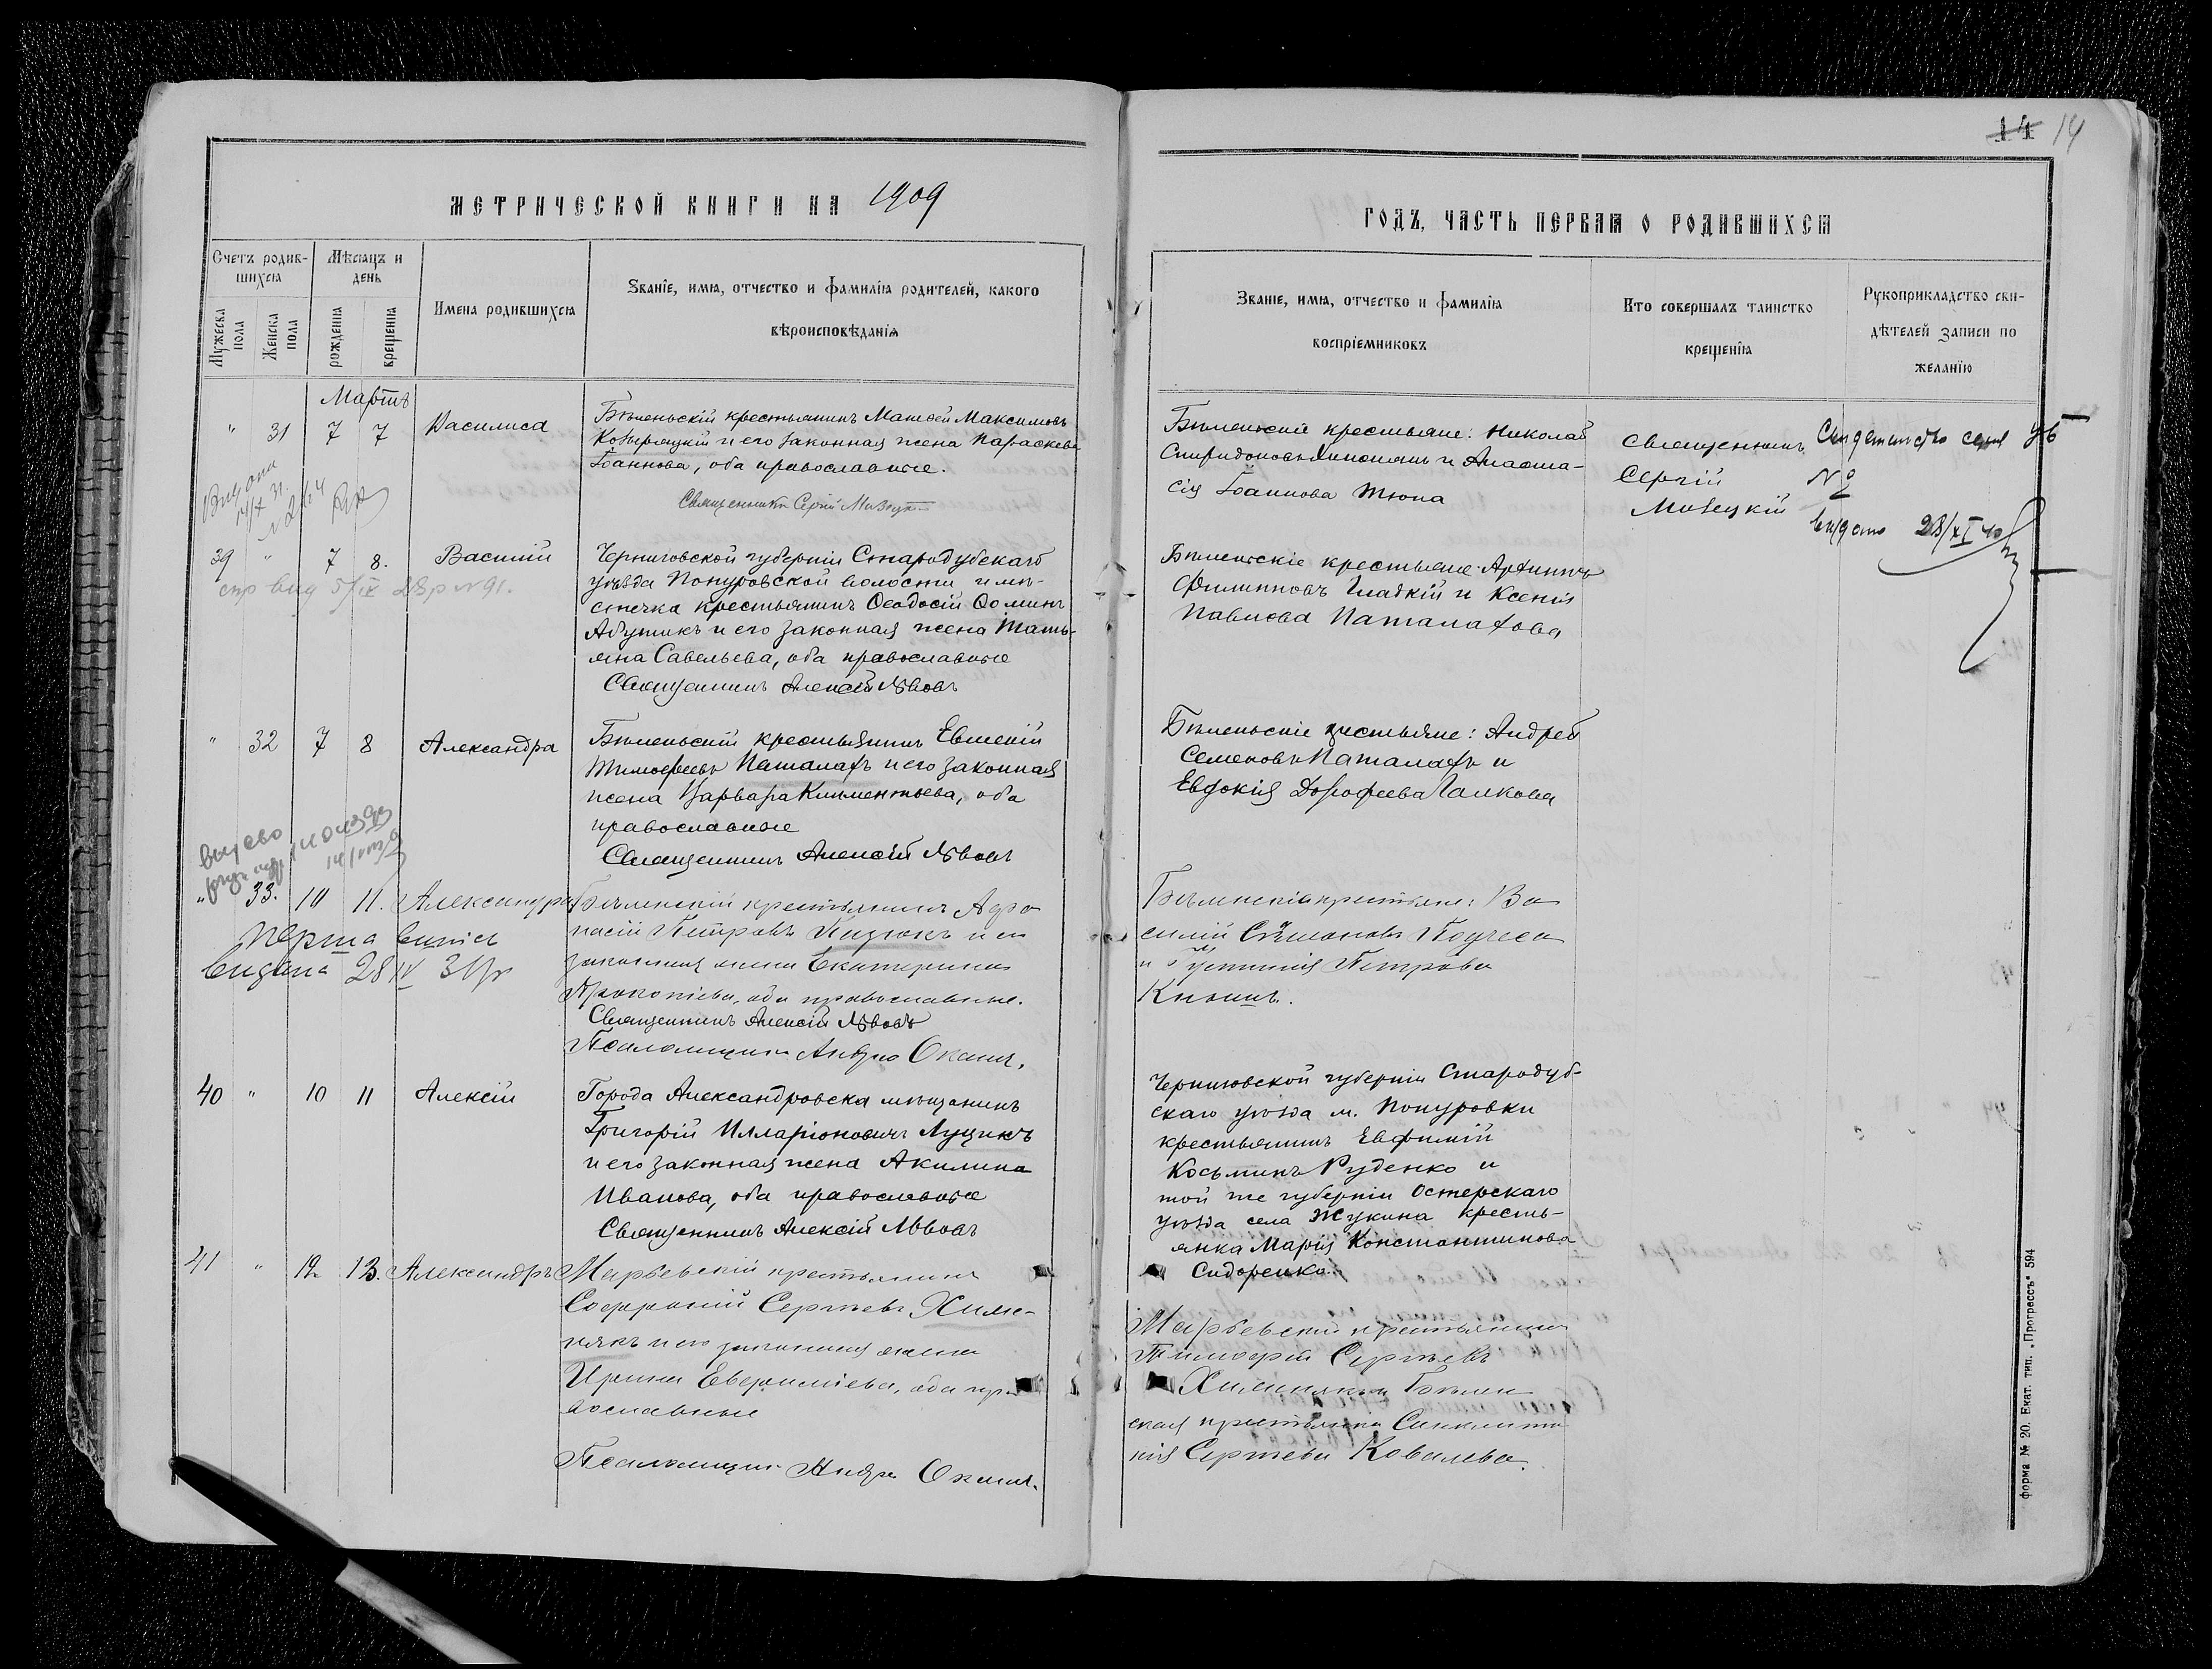 14 14
МЕТРИЧЕСКОЙ КНИГИ НА 1909
ГОДЪ, ЧАСТЬ ПЕРВАЯ О РОДИВШИХСЯ
Счетъ родив-
шихся
Мужеска
пола
Женска
пола
Мѣсяцъ и
день
рожденія
крещенія
Имена родившихся
Званіе, имя, отчество и фамилія родителей, какого
вѣроисповѣданія
Званіе, имя, отчество и фамилія
воспріемниковъ
Кто совершалъ таинство
крещенія
Рукоприкладство сви-
дѣтелей записи по
желанію
Мартъ
" 31 7 7 Василиса
Бѣленьскій крестьянинъ Матѳей Максимовъ
Козыряцкій и его законная жена Параскева
Іоаннова, оба православные.
Священникъ Сергій
Бѣленьскіе крестьяне: Николай
Спиридоновъ и Анаста-
сія Іоаннова Тюпа
Священникъ
Сергій
№
28/XI 40
39 " 7 8. Василій
5/IX 28р №91.
Черниговской губерніи Стародубскаго
уѣзда Понуровской волости и мѣ-
стечка крестьянинъ Ѳеодосій Ѳоминъ
Абутикъ и его законная жена Тать-
яна Савельева, оба православные
Священникъ Алексій Львовъ
Бѣленьскіе крестьяне: Архиппъ
Филипповъ Гладкій и Ксенія
Павлова Паталахова
" 32 7 8 Александра
Бѣленьскій крестьянинъ Евменій
Тимофеевъ Паталахъ и его законная
жена Варвара Климентьева, оба
православные
Священникъ Алексій Львовъ
Бѣленьскіе крестьяне: Андрей
Семеновъ Паталахъ и
Евдокія Дорофеева Галкова
" 33. 10 11. Александра
видана 28 IV 31р
Бѣленскій крестьянинъ Афа-
насій Петровъ и его
законная жена Екатерина
Прокопіева, оба православные.
Священникъ Алексій Львовъ
Псаломщикъ Андрей
Бѣленскіе крестьяне: Ва-
силій
и Устинія Петрова
40 " 10 11 Алексій
Города Александровска мѣщанинъ
Григорій Илларіоновичъ Луцикъ
и его законная жена Акилина
Иванова, оба православные
Священникъ Алексій Львовъ
Черниговской губерніи Стародуб-
скаго уѣзда м. Понуровки
крестьянинъ Евфимій
Косьминъ Руденко и
той же губерніи Остерскаго
уѣзда села Жукина кресть-
янка Марія Константинова
Сидоренко.
41 " 12 13. Александръ
Марьевскій крестьянинъ
Софроній Сергѣевъ Химе-
някъ и его законная жена
Ирина Евфиміева, оба пра-
вославные
Псаломщикъ Андрей
Марьевскій крестьянинъ
Тимофей Сергѣевъ
Хименякъ и Бѣлен-
ская крестьянка Синклити-
кія Сергѣева Ковалева.
форма № 20. Екат. тип. „Прогрессъ" 594